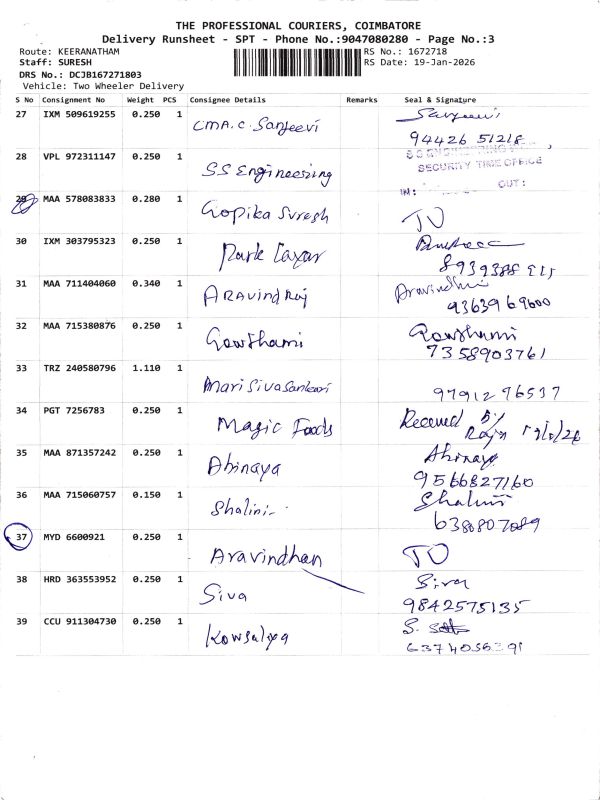 THE PROFESSIONAL COURIERS, COIMBATORE
Delivery Runsheet - SPT - Phone No.:9047080280 - Page No.:3
Route: KEERANATHAM
RS No.: 1672718
Staff: SURESH
RS Date: 19-Jan-2026
DRS No.: DCJB167271803
Vehicle: Two Wheeler Delivery
S No Consignment No Weight PCS Consignee Details Remarks Seal & Signature
27 IXM 509619255 0.250 1 CMA.C. Sanjeevi
94426 51218
28 VPL 972311147 0.250 1 SS Engineering
SECURITY TIME OFFICE
IN: OUT:
29 MAA 578083833 0.280 1 Gopika Suresh
30 IXM 303795323 0.250 1 Park
31 MAA 711404060 0.340 1 Aravind Raj Aravindhu
9363969600
32 MAA 715380876 0.250 1 Gowthami Gowthami
7358903761
33 TRZ 240580796 1.110 1 Mari Sivasankari
9791296537
34 PGT 7256783 0.250 1 Magic Foods Received by
35 MAA 871357242 0.250 1 Abinaya Abinaya
9566827160
36 MAA 715060757 0.150 1 Shalini Shalini
37 MYD 6600921 0.250 1 Aravindhan
38 HRD 363553952 0.250 1 Siva Siva
9842575135
39 CCU 911304730 0.250 1 Kowsalya
6374056391